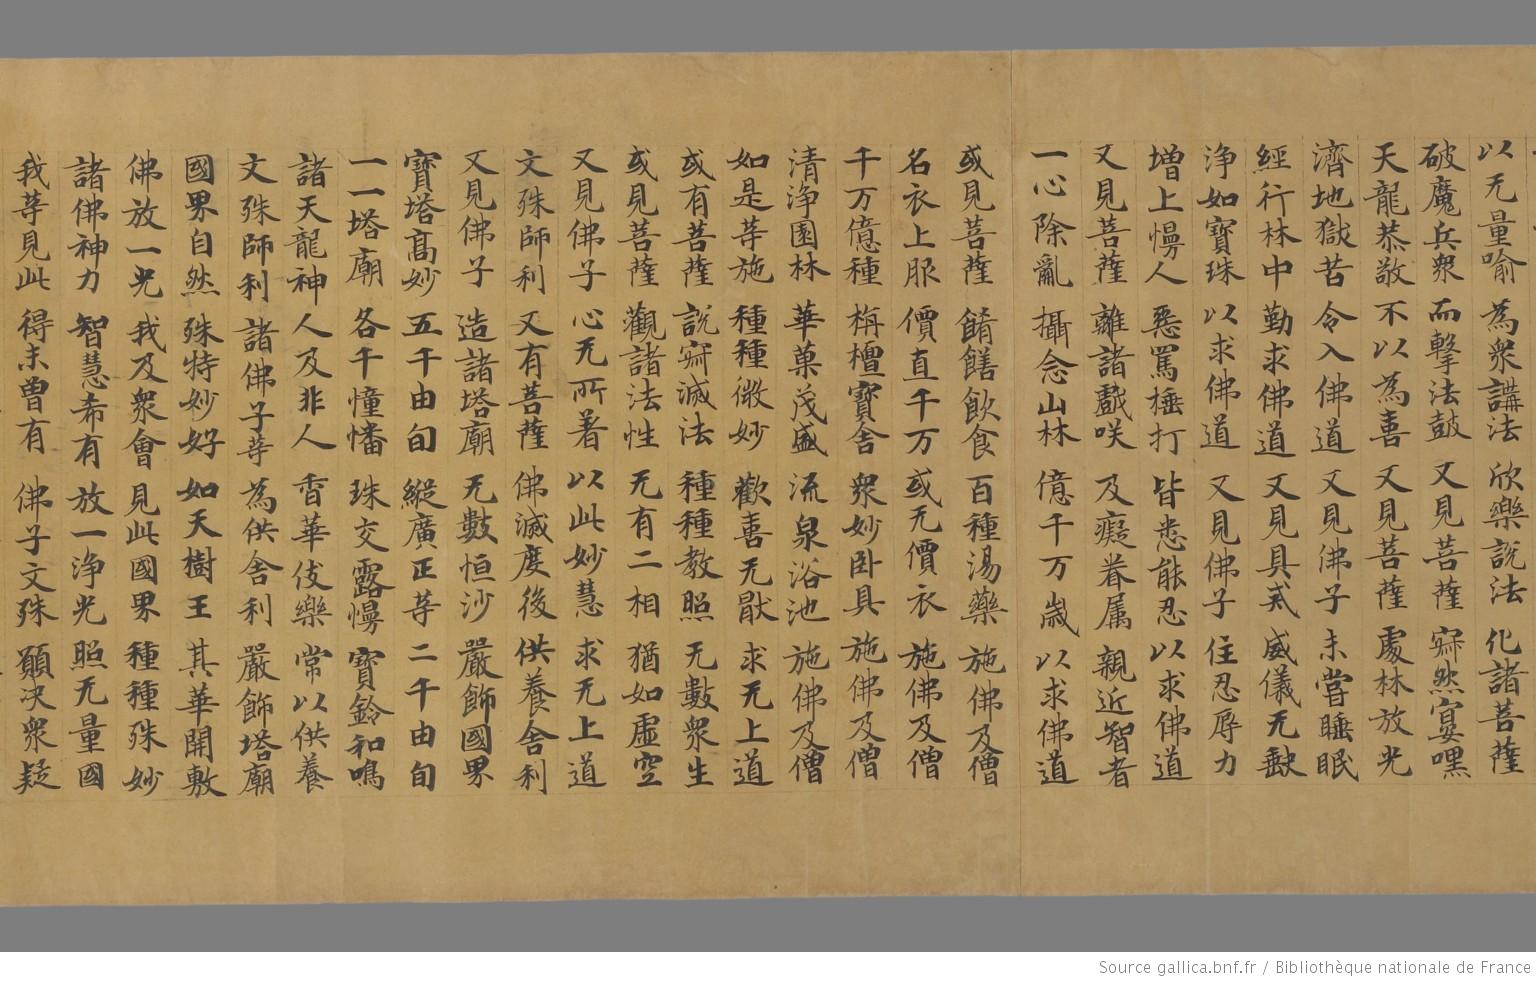 以无量喻 為衆講法 欣樂説法 化諸菩薩
破魔兵衆 而擊法鼓 又見菩薩 寂然宴嘿
天龍恭敬 不以為喜 又見菩薩 處林放光
濟地獄苦 令入佛道 又見佛子 未嘗睡眠
經行林中 勤求佛道 又見具戒 威儀无缺
浄如寶珠 以求佛道 又見佛子 住忍辱力
增上慢人 惡罵捶打 皆悉能忍 以求佛道
又見菩薩 離諸戲咲 及癡眷属 親近智者
一心除亂 攝念山林 億千万歲 以求佛道
或見菩薩 餚饍飲食 百種湯藥 施佛及僧
名衣上服 價直千万 或无價衣 施佛及僧
千万億種 栴檀寶舍 衆妙卧具 施佛及僧
清浄園林 華菓茂盛 流泉浴池 施佛及僧
如是等施 種種微妙 歡喜无猒 求无上道
或有菩薩 説寂滅法 種種教照 无數衆生
或見菩薩 觀諸法性 无有二相 猶如虛空
又見佛子 心无所著 以此妙慧 求无上道
文殊師利 又有菩薩 佛滅度後 供養舍利
又見佛子 造諸塔廟 无數恒沙 嚴飾國界
寶塔髙妙 五千由旬 縱廣正等 二千由旬
一一塔廟 各千幢幡 珠交露幔 寶鈴和鳴
諸天龍神 人及非人 香華伎樂 常以供養
文殊師利 諸佛子等 為供舍利 嚴飾塔廟
國界自然 殊特妙好 如天樹王 其華開敷
佛放一光 我及衆會 見此國界 種種殊妙
諸佛神力 智慧希有 放一浄光 照无量國
我等見此 得未曾有 佛子文殊 願决衆疑
Source gallica.bnf.fr / Bibliothèque nationale de France